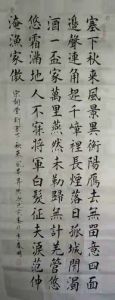 塞下秋來風景異衡陽雁去無留意四面
邊聲連角起千嶂裡長煙落日孤城閉濁
酒一盃家萬里燕然未勒歸無計羌管悠
悠霜滿地人不寐將軍白髮征夫淚范仲
淹漁家傲